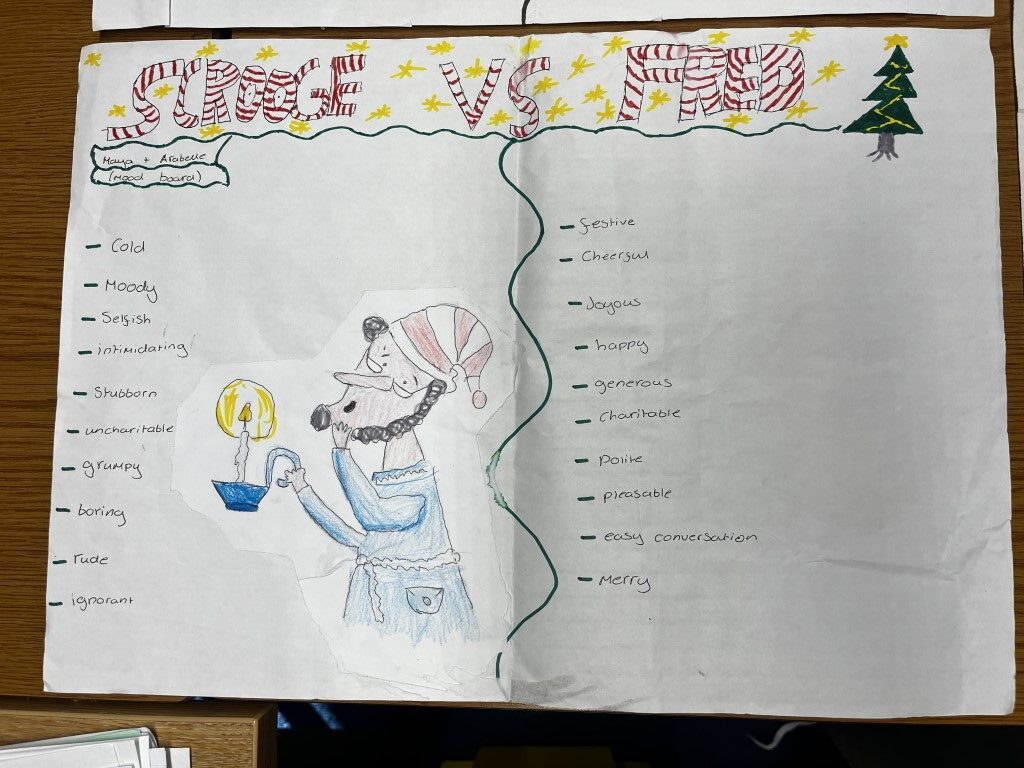 SCROOGE VS FRED
Maya + Arabelle
(Mood board)
- Cold
- Moody
- Selfish
- intimidating
- Stubborn
- uncharitable
- grumpy
- boring
- rude
- ignorant
- festive
- Cheerful
- Joyous
- happy
- generous
- Charitable
- Polite
- pleasable
- easy conversation
- Merry